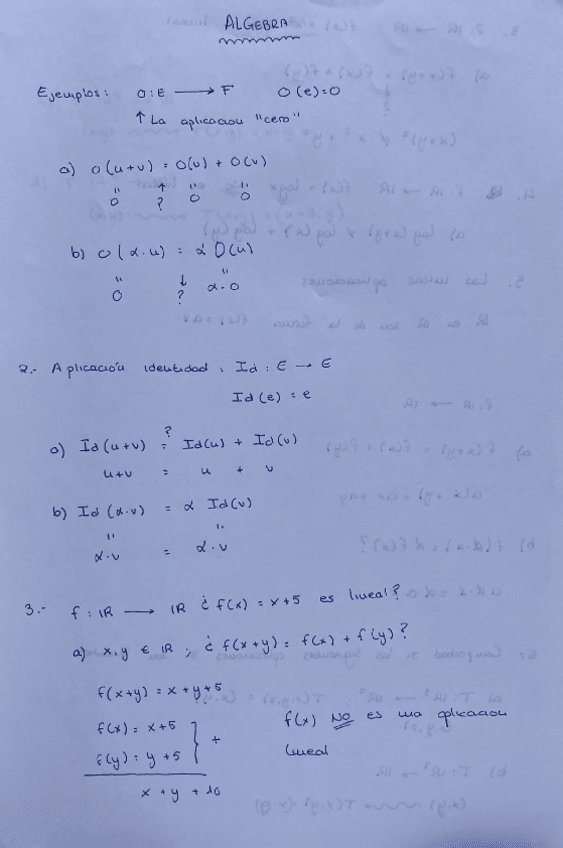 ALGEBRA
Ejemplos: O : E → F O(e) = 0
↑ La aplicacion "cero"
a) O(u+v) = O(u) + O(v)
" ↑ " "
0 ? 0 0
b) O(α·u) = α O(u)
" ↓ "
0 ? α·0
2.- Aplicación identidad : Id : E → E
Id(e) = e
a) Id(u+v) =? Id(u) + Id(v)
u+v = u + v
b) Id(α·v) = α Id(v)
" "
α·v = α·v
3.- f : IR → IR ¿ f(x) = x+5 es lineal?
a) x,y ∈ IR ; ¿ f(x+y) = f(x) + f(y)?
f(x+y) = x+y+5
f(x) = x+5
f(y) = y+5 } +
x + y + 10
f(x) NO es una aplicacion
lineal